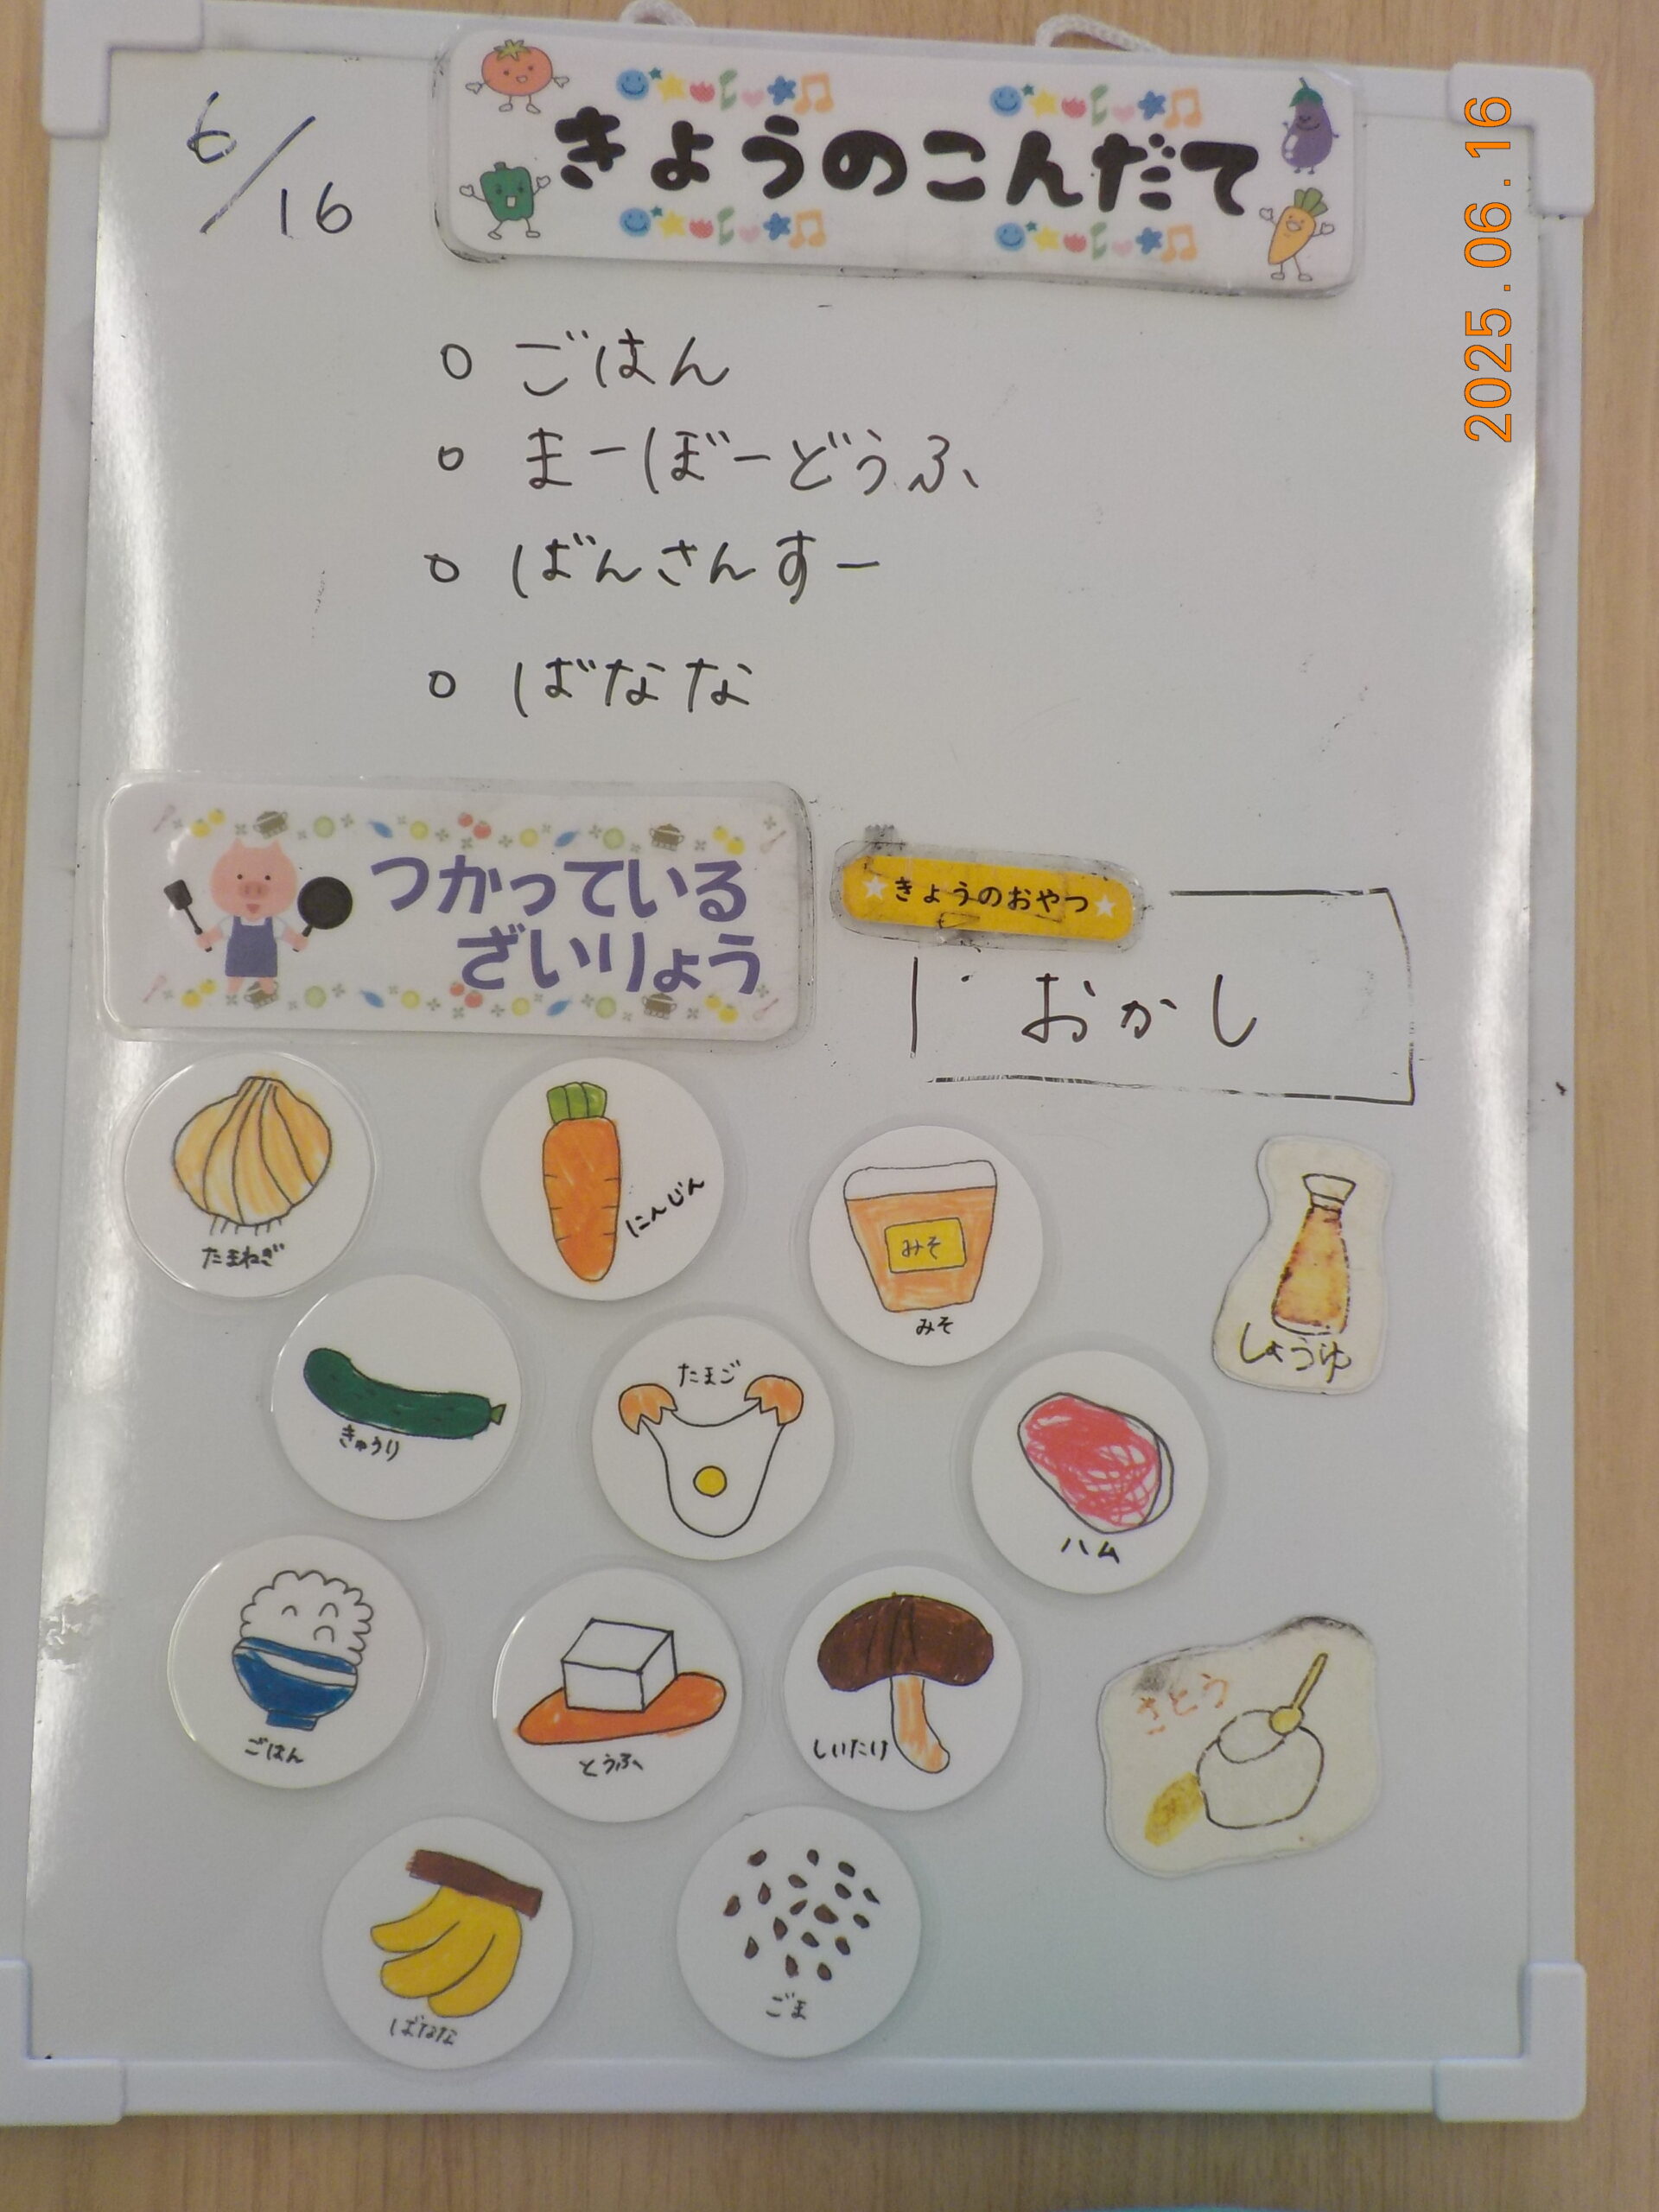 6/16
きょうのこんだて
2025.06.16
○ ごはん
○ まーぼーどうふ
○ ばんさんすー
○ ばなな
つかっている
ざいりょう
★きょうのおやつ★
おかし
たまねぎ
にんじん
みそ
みそ
しょうゆ
きゅうり
たまご
ハム
ごはん
とうふ
しいたけ
さとう
ばなな
ごま